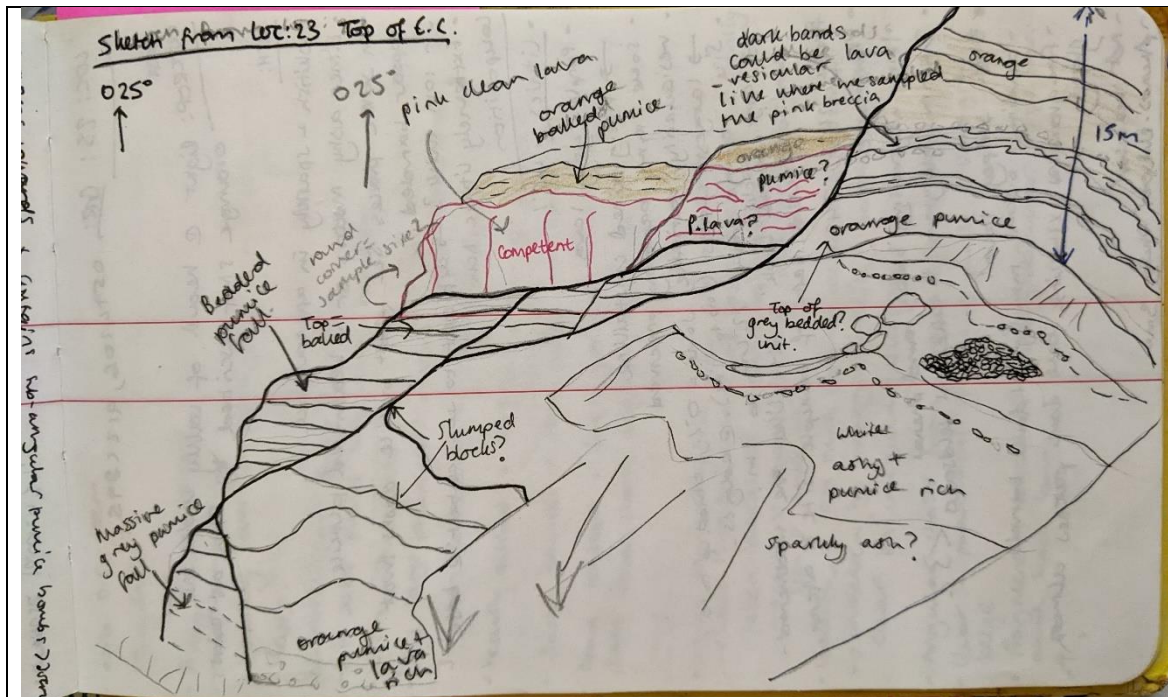 Sketch from Loc: 23 Top of E.C.
025°
025°
pink clean lava
orange
baked pumice
dark bands
could be lava
vesicular
like where we sampled
the pink breccia
orange
15m
orange
pumice?
P. lava?
Competent
orange pumice
round
corner-
sample site?
Top-
baked
Bedded
pumice
fall
Top of
grey bedded?
unit.
Slumped
blocks?
white
ashy +
pumice rich
Sparkly ash?
Massive
grey pumice
fall
orange
pumice +
lava
rich
sub-angular pumice